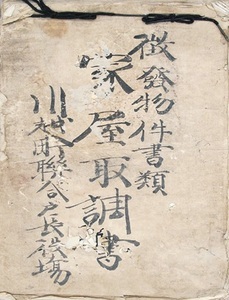 徴發物件書類
家屋取調書
川越町聯合戸長役場